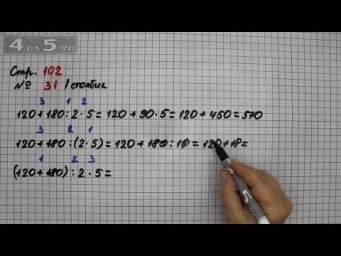 4DA5.RU
Стр. 102
№ 31 1 столбик
3 1 2
120+180:2·5=120+90·5=120+450=570
3 2 1
120+180:(2·5)=120+180:10=120+18=
1 2 3
(120+180):2·5=